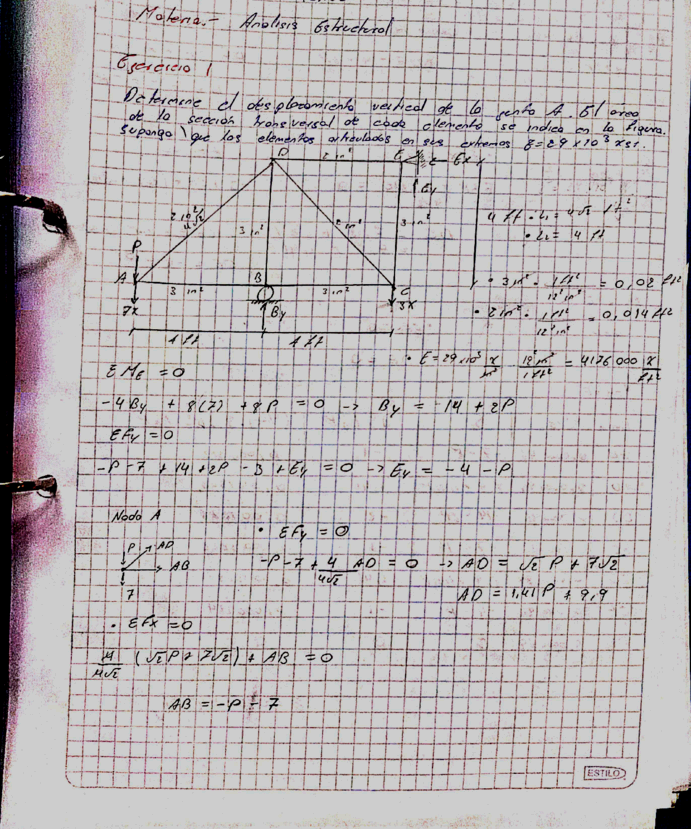 Materia.- Análisis Estructural
Ejercicio 1
Determine el desplazamiento vertical de la junta A. El área
de la sección transversal de cada elemento se indica en la figura.
Suponga que los elementos articulados en sus extremos E=29 x10³ ksi.
D 2 in² E Ex
Ey
2 in²
4√2
3 in²
2 in²
3 in²
4 ft
• L₁ = 4√2 ft
• L₂ = 4 ft
P
A 3 in² B 3 in² C
7k By 3k
4 ft 4 ft
• 3 in² · 1 ft² / 12² in² = 0,02 ft²
• 2 in² · 1 ft² / 12² in² = 0,014 ft²
• E = 29x10³ k/in² · 12² in² / 1 ft² = 4176000 k/ft²
ΣME = 0
-4By + 8(7) + 8P = 0 → By = -14 + 2P
ΣFy = 0
-P - 7 + 14 + 2P - 3 + Ey = 0 → Ey = -4 - P
Nodo A
P AD
AB
7
• ΣFy = 0
-P - 7 + 4/4√2 AD = 0 → AD = √2 P + 7√2
AD = 1,41P + 9,9
• ΣFx = 0
4/4√2 (√2P + 7√2) + AB = 0
AB = -P - 7
ESTILO